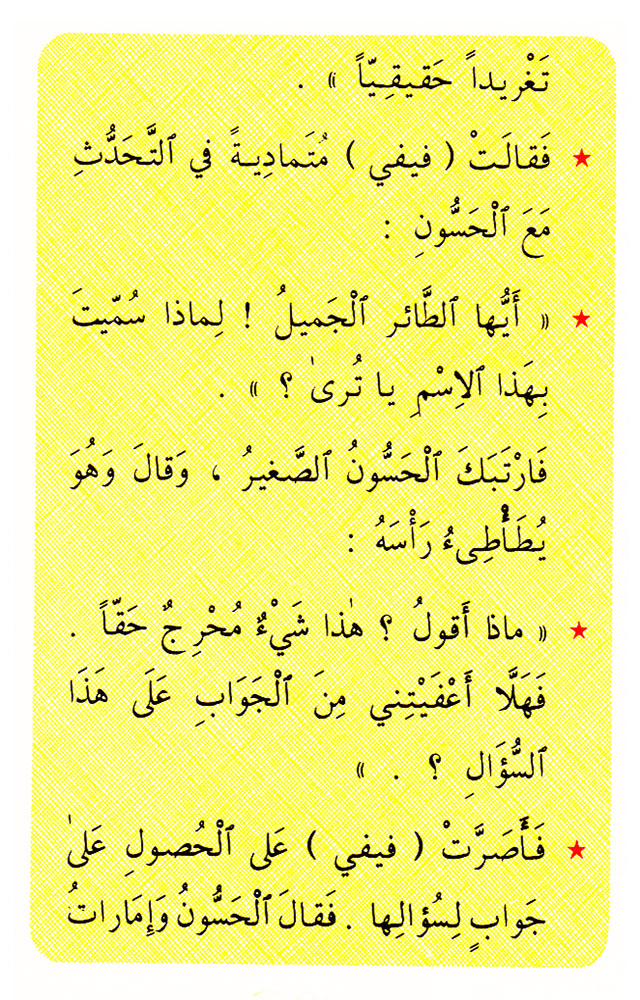 تَغْريداً حَقيقِـيّاً » .
★ فَقالَتْ ( فيفي ) مُتَمادِيـةً في ٱلتَّحَدُّثِ
مَعَ ٱلْحَسُّونِ :
★ « أَيُّها ٱلطَّائر ٱلْجَميلُ ! لِماذا سُمّيتَ
بِهَذا ٱلاِسْمِ يا تُرىٰ ؟ » .
فَارْتَبَكَ ٱلْحَسُّونُ ٱلصَّغيرُ ، وَقالَ وَهُوَ
يُطَأْطِىءُ رَأْسَهُ :
★ « ماذا أَقولُ ؟ هٰذا شَيْءٌ مُحْرِجٌ حَقّاً .
فَهَلَّا أَعْفَيْتِني مِنَ ٱلْجَوَابِ عَلَى هَذَا
ٱلسُّؤَالِ ؟ . »
★ فَأَصَرَّتْ ( فيفي ) عَلى ٱلْحُصولِ عَلىٰ
جَوابٍ لِسُؤالِها . فَقالَ ٱلْحَسُّونُ وَإِمَاراتُ